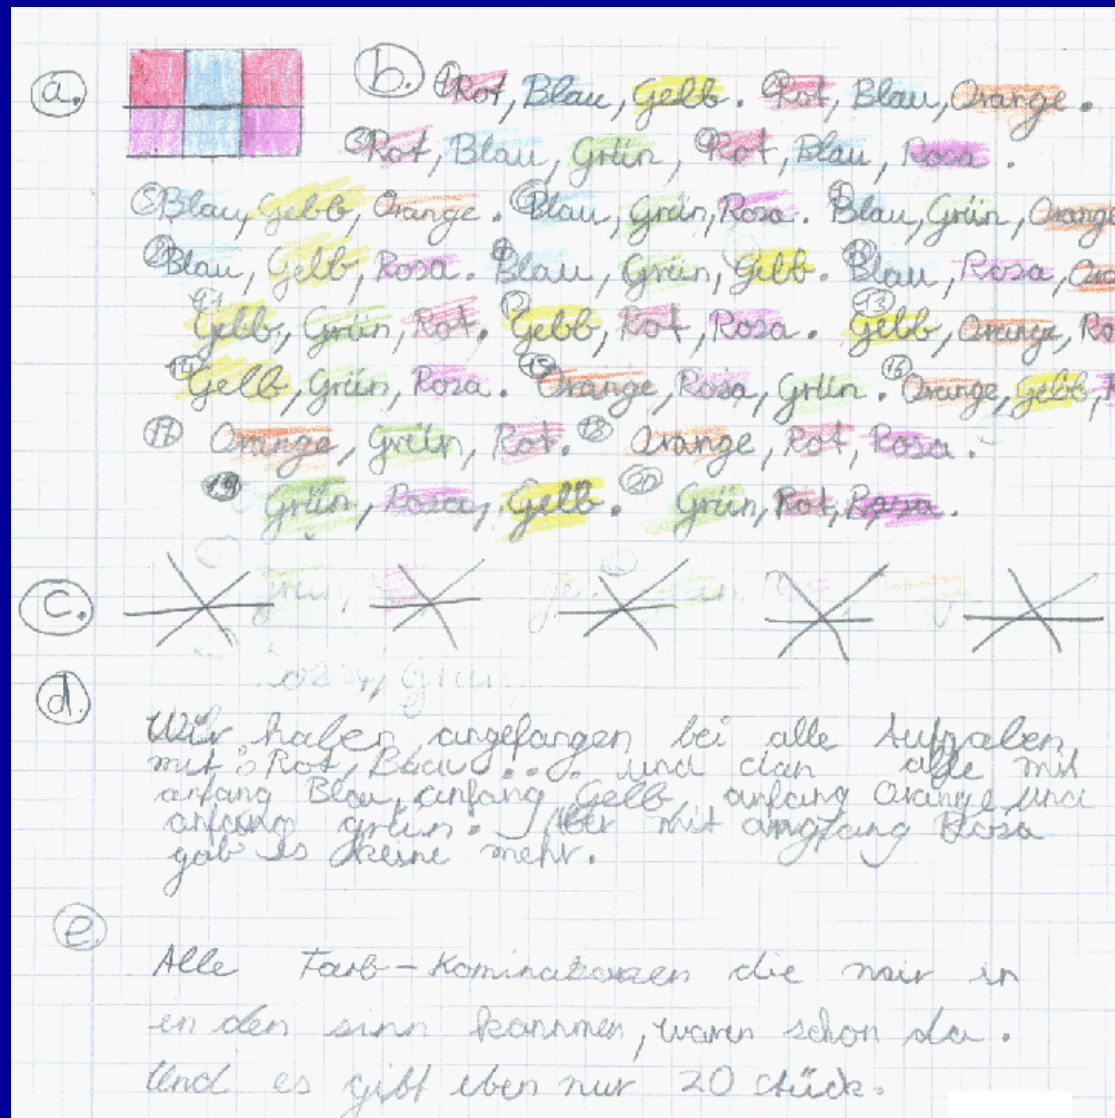 a. b. ① Rot, Blau, Gelb. ② Rot, Blau, Orange.
③ Rot, Blau, Grün, ④ Rot, Blau, Rosa.
⑤ Blau, Gebb, Orange. ⑥ Blau, Grün, Rosa. ⑦ Blau, Grün, Orange
⑧ Blau, Gelb, Rosa. ⑨ Blau, Grün, Gebb. ⑩ Blau, Rosa, Ora
⑪ Gebb, Grün, Rot. ⑫ Gebb, Rot, Rosa. ⑬ Gebb, Orange, Ro
⑭ Gelb, Grün, Rosa. ⑮ Orange, Rosa, Grün. ⑯ Orange, Gebb, R
⑰ Orange, Grün, Rot. ⑱ Orange, Rot, Rosa.
⑲ Grün, Rosa, Gelb. ⑳ Grün, Rot, Rosa.
c.
d.
Wir haben angefangen bei alle Aufgaben
mit: Rot, Blau .... und dan alle mit
anfang Blau, anfang Gelb, anfang Orange und
anfang grün. Aber mit angfang Rosa
gab es keine mehr.
e.
Alle Farb-Kominationen die mir in
in den sinn kommen, waren schon da.
Und es gibt eben nur 20 stück.